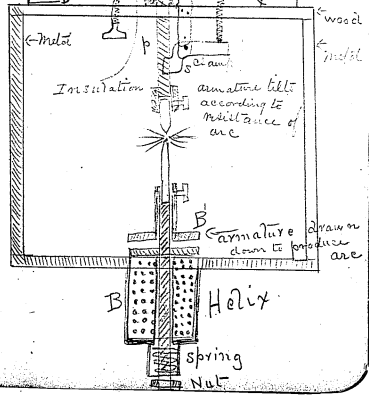 wood
Metal
metal
p
s clamp
Insulation
armature tilts
according to
resistance of
arc
B'
armature drawn
down to produce
arc
B
Helix
spring
Nut